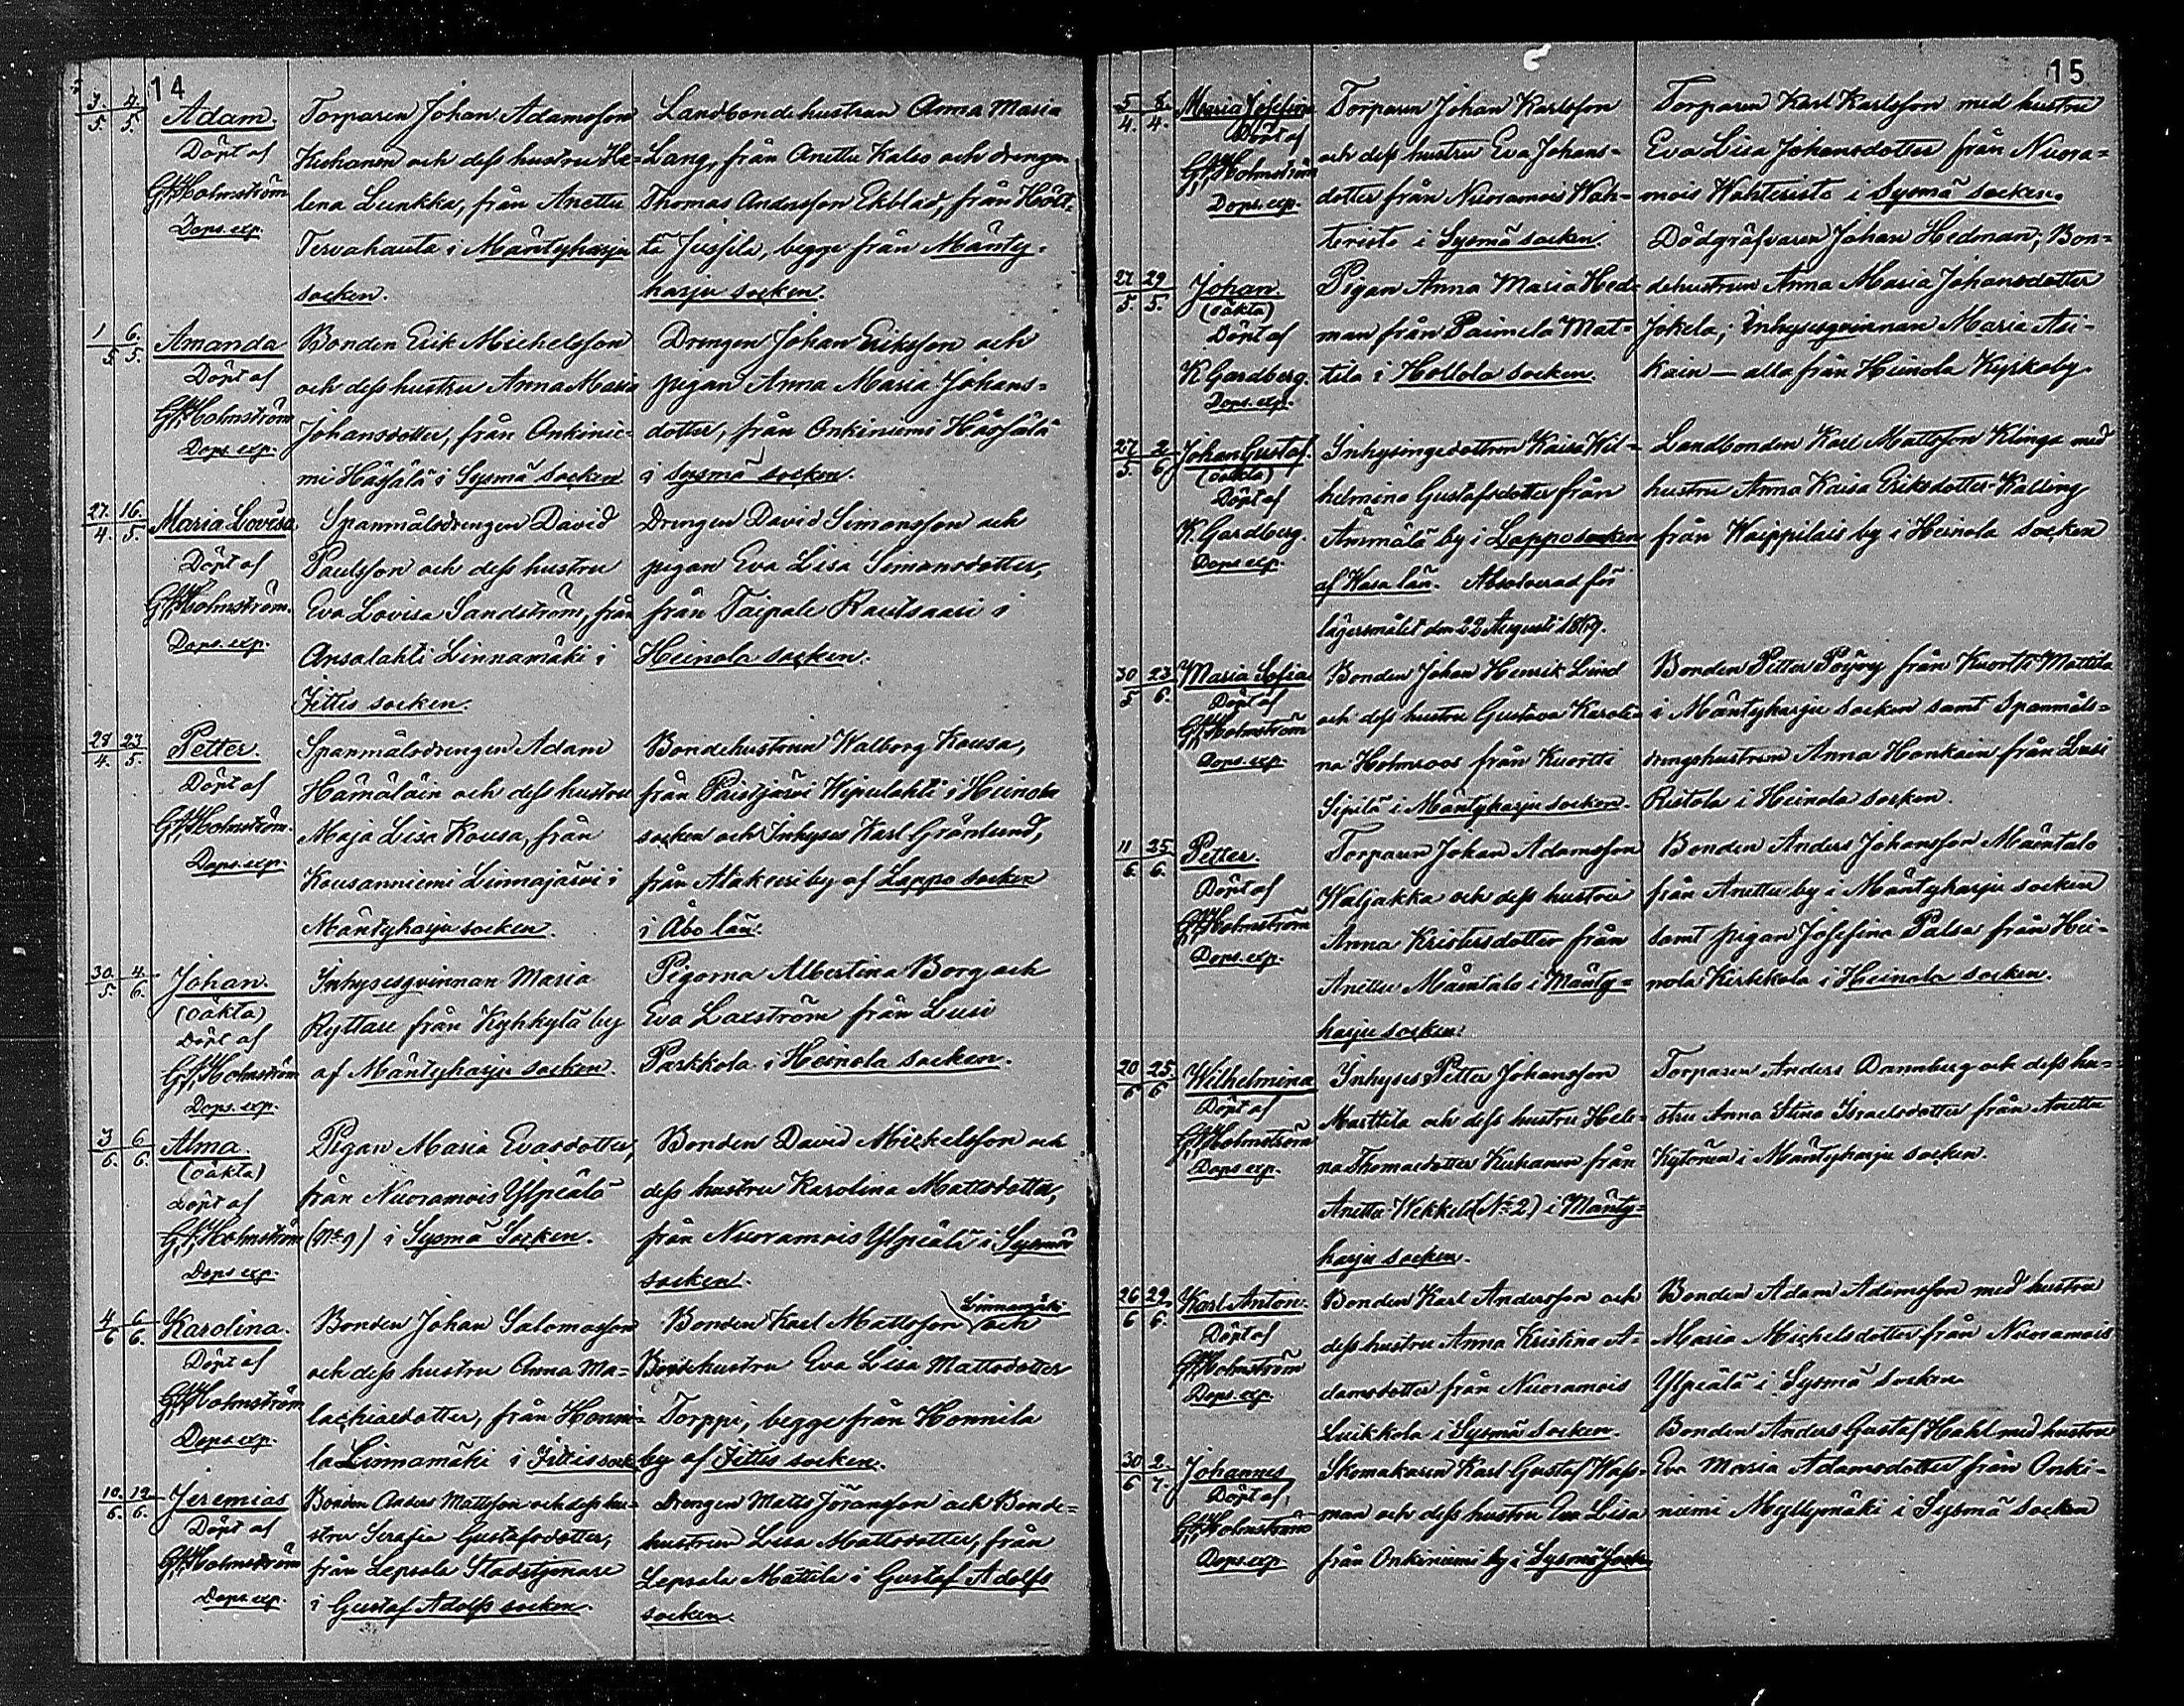 14
3/5. 4/5. Adam. Torparen Johan Adamsson Landbondehustrun Anna Maria
Döpt af Kuhanen och dess hustru He- Lang, från Anettu Kalso och drengen
G.A. Holmström lena Lunkka, från Anettu Thomas Andersson Ekblad, från Hölt-
Dops. exp. Tervahauta i Mäntyharju tä Jussila, begge från Mänty-
socken. harju socken.
1/5 6/5. Amanda Bonden Erik Michelsson Drengen Johan Eriksson och
Döpt af och dess hustru Anna Maria pigan Anna Maria Johans-
G.A. Holmström Johansdotter, från Onkinie- dotter, från Onkiniemi Häyhälä
Dops exp. mi Häyhälä i Sysmä socken i Sysmä socken.
27./4. 16./5. Maria Lovisa Spanmålsdrengen David Drengen David Simonsson och
Döpt af Paulsson och dess hustru pigan Eva Lisa Simonsdotter,
G.A. Holmström. Eva Lovisa Sandström, från från Taipale Rautsaari i
Dops. exp. Ansalahti Linnamäki i Heinola socken.
Jittis socken.
28/4. 23/5. Petter. Spanmålsdrengen Adam Bondehustrun Walborg Kousa,
Döpt af Hämäläin och dess hustru från Paistjärvi Wipulahti i Heinola
G.A. Holmström. Maja Lisa Kousa, från socken och Inhyses Karl Grönlund,
Dops. exp. Kousanniemi Linnajärvi i från Alakeeri by af Lappo socken
Mäntyharju socken. i Åbo län.
30./5. 4./6. Johan. Inhysesqvinnan Maria Pigorna Albertina Borg och
(oäkta) Ryttare från Kyhkylä by Eva Laxström från Lusi
Döpt af
G.A. Holmström af Mäntyharju socken. Parkkola i Heinola socken.
Dops. exp.
3/6. 6/6. Alma. Pigan Maria Evasdotter, Bonden David Mickelsson och
(oäkta)
Döpt af från Nuoramois Ylpiälä dess hustru Karolina Mattsdotter,
G.A. Holmström (No 9) i Sysmä Socken. från Nuoramois Ylpiälä i Sysmä
Dops exp. socken.
4/6 6/6. Karolina. Bonden Johan Salomosson Bonden Karl Mattsson Linnamäki och
Döpt af och dess hustru Anna Ma- Bondehustru Eva Lisa Mattsdotter
G.A. Holmström lachiasdotter, från Honni- Torppi, begge från Honnila
Dops exp. la Linnamäki i Jittis sock. by af Jittis socken.
10./6. 12./6. Jeremias Bonden Anders Mattsson och dess hu- Drengen Matts Jöransson och Bonde-
Döpt af stru Serafia Gustafsdotter, hustrun Lisa Mattsdotter, från
G.A. Holmström från Lepsala Stadstjenare Lepsala Mattila i Gustaf Adolfs
Dops exp. i Gustaf Adolfs socken. socken.
15
5/4. 8./4. Maria Josefina Torparen Johan Karlsson Torparen Karl Karlsson med hustru
Döpt af och dess hustru Eva Johans- Eva Lisa Johansdotter från Nuora-
G.A. Holmström dotter från Nuoramois Wah- mois Wahteristo i Sysmä socken.
Dops. exp. teristo i Sysmä socken. Dödgräfvaren Johan Hedman; Bon-
27/5. 29/5. Johan. Pigan Anna Maria Hed- dehustrun Anna Maria Johansdotter
(oäkta)
Döpt af man från Paimela Mat- Jokela; Inhysesqvinnan Maria Asi-
K. Gardberg. tila i Hollola socken. kain — alla från Heinola Kyrkoby.
Dops. exp.
27/5. 2/6 Johan Gustaf. Inhysingedottren Kaisa Wil- Landbonden Karl Mattsson Klinga med
(oäkta)
Döpt af helmina Gustafsdotter från hustru Anna Kaisa Eriksdotter Kalling
K. Gardberg. Ämmälä by i Lappo socken från Waippilais by i Heinola socken
Dops exp. af Wasa län. Absolverad för
lägersmålet den 22 Augusti 1879.
30/5 23/6. Maria Sofia Bonden Johan Henrik Lind Bonden Petter Pöyry från Kuortti Mattila
Döpt af och dess hustru Gustava Karoli- i Mäntyharju socken samt Spanmåls-
G.A. Holmström na Holmroos från Kuortti drengshustrun Anna Honkain från Lusi
Dops. exp. Sipilä i Mäntyharju socken. Ristola i Heinola socken.
11/6. 25./6. Petter. Torparen Johan Adamsson Bonden Anders Johansson Mäntalo
Döpt af Waljakka och dess hustru från Anettu by i Mäntyharju socken
G.A. Holmström Anna Kristersdotter från samt pigan Josefina Palsa från Hei-
Dops. exp. Anettu Mäntalo i Mänty- nola Kirkkola i Heinola socken.
harju socken.
20/6 25./6. Wilhelmina Inhyses Petter Johansson Torparen Anders Dannberg och dess hu-
Döpt af Marttila och dess hustru Hele- stru Anna Stina Israelsdotter från Anettu
G.A. Holmström na Thomasdotter Kuhanen från Kytönen i Mäntyharju socken.
Dops exp. Anettu Wekkeli (No 2) i Mänty-
harju socken.
26/6 29./6. Karl Anton. Bonden Karl Andersson och Bonden Adam Adamsson med hustru
Döpt af dess hustru Anna Kristina A- Maria Michelsdotter från Nuoramois
G.A. Holmström damsdotter från Nuoramois Ylpiälä i Sysmä socken
Dops. exp. Luikkola i Sysmä socken. Bonden Anders Gustaf Hahl med hustru
30/6 2./7. Johannes Skomakaren Karl Gustaf Wass- Eva Maria Adamsdotter från Onki-
Döpt af, man och dess hustru Eva Lisa niemi Myllymäki i Sysmä socken
G.A. Holmström från Onkiniemi by i Sysmä Socken
Dops. exp.